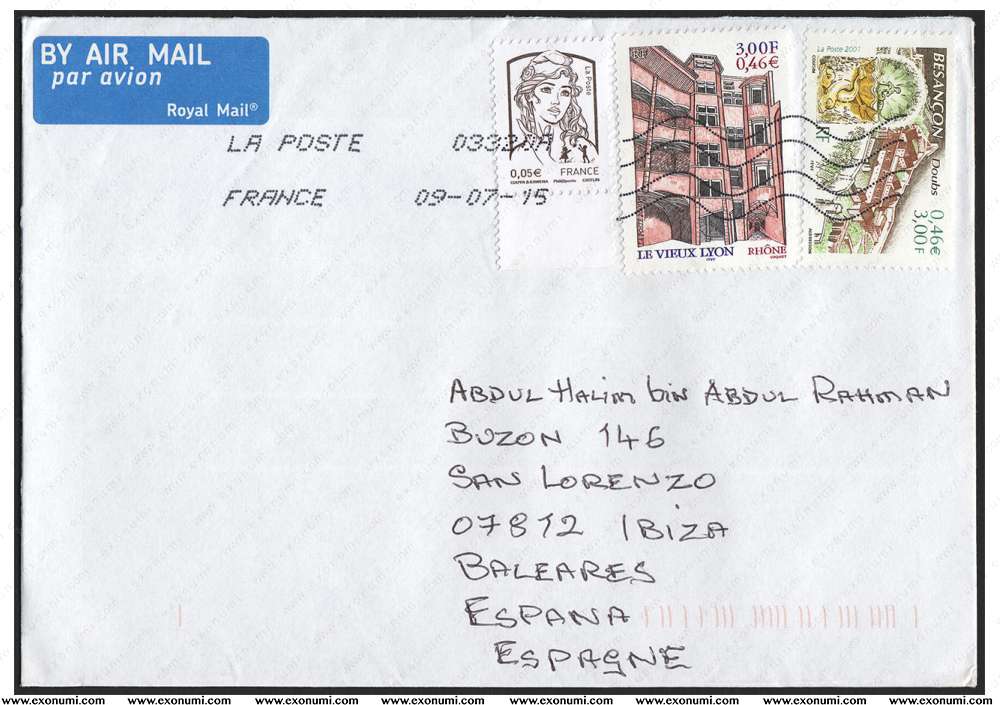 BY AIR MAIL
par avion
Royal Mail®
LA POSTE
FRANCE 09-07-15
La Poste
0,05€ FRANCE
RF
3,00F
0,46€
LE VIEUX LYON RHÔNE
La Poste 2001
BESANÇON
Doubs
RF
0,46€
3,00F
ABDUL Halim bin ABDUL RAHMAN
BUZON 146
SAN LORENZO
07812 IBIZA
BALEARES
ESPANA
ESPAGNE
www.exonumi.com www.exonumi.com www.exonumi.com www.exonumi.com www.exonumi.com www.exonumi.com www.exonumi.com www.exonumi.com